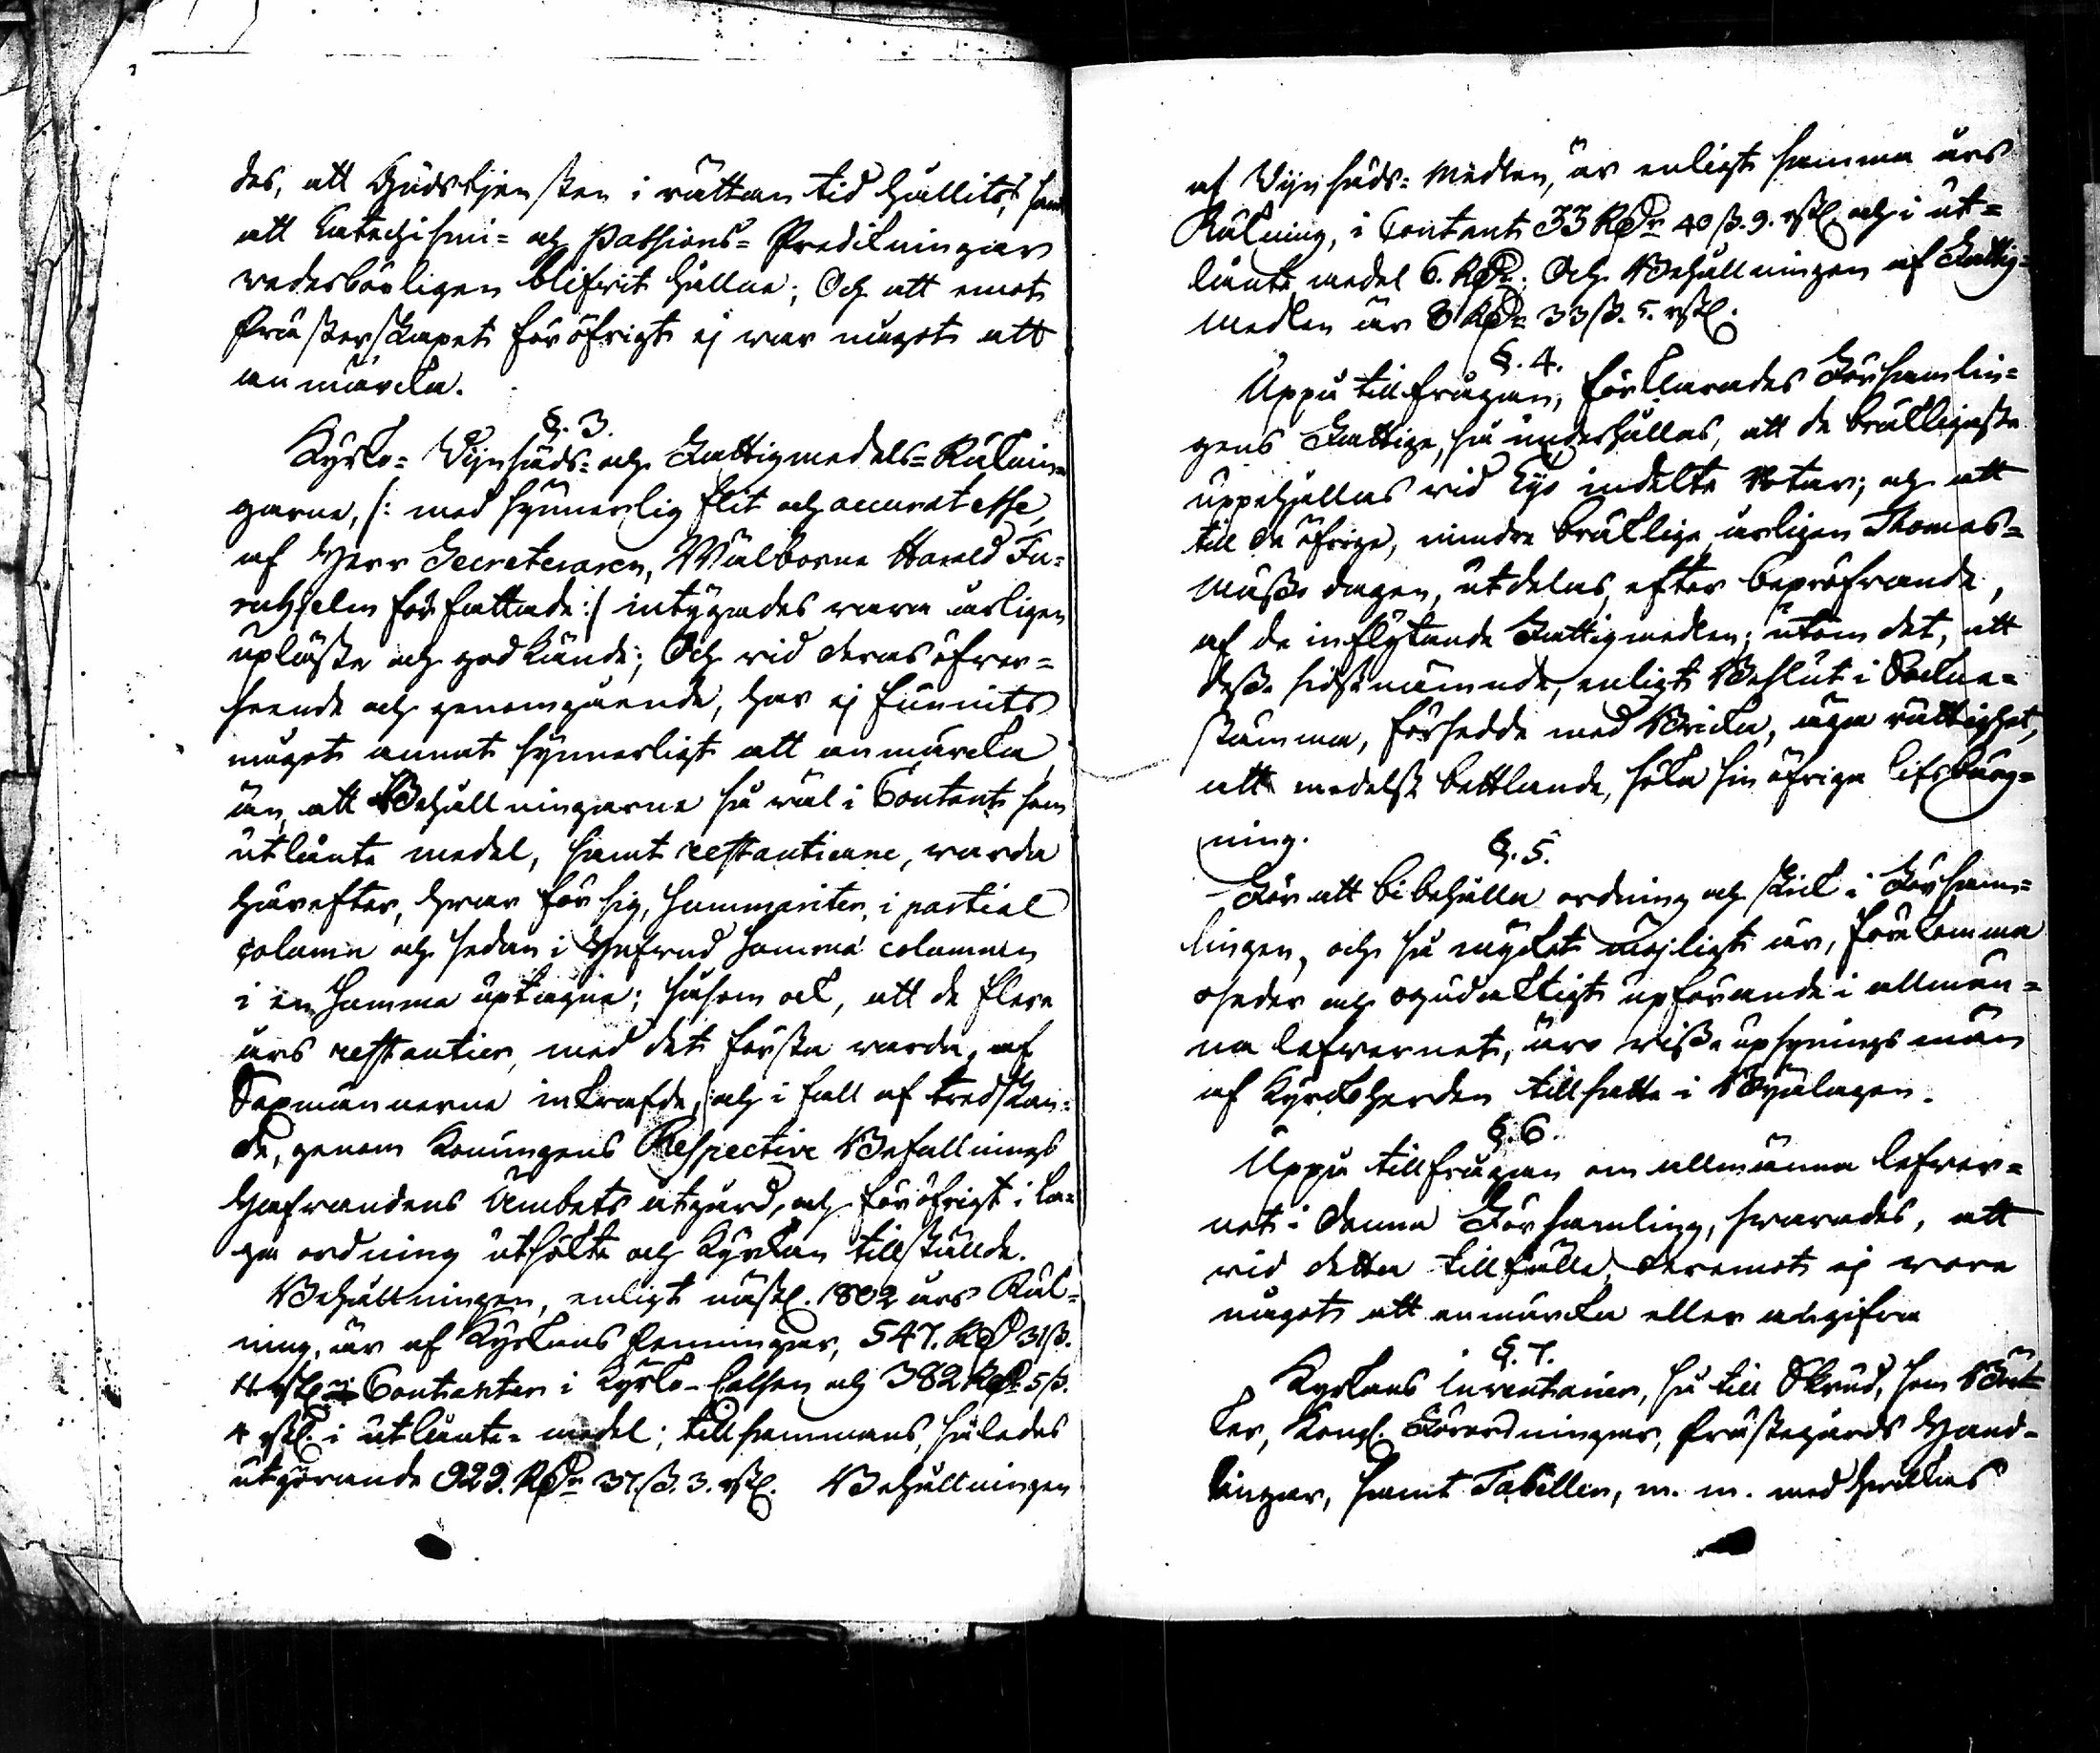 des, att Gudstjensten i rättan tid hållits, samt
att Catechismi= och Passions= Predikningar
wederbörligen blifwit hållne; Och att emot
Prästerskapet för öfrigt ej war något att
anmärcka.
§. 3.
Kyrko= Wijnsäds= och Fattigmedels= Räknin=
garne, /: med synnerlig flit och accuratesse,
af Herr Secreteraren, Wälborne Harald Fu=
ruhjelm författade :/ intygades wara årligen
upläste och godkände; Och wid deras öfwer=
seende och genomgående, har ej funnits
något annat synnerligt att anmärcka
än, att Behållningarne så wäl i Contant som
utlånte medel, samt restantierne, warda
härefter, hwar för sig, summariter, i partial
colomn och sedan i Hufwud somma colomnen
i en Somma uptagne; såsom ock, att de flere
års restantier, med det första warda, af
Sexmännerne inkrafde, och i fall af tredskan=
de, genom Konungens Respective Befallnings
Hafwandens Ämbets åtgärd, och för öfrigt i la=
ga ordning utsökte och Kyrkan tillstälde.
Behållningen, enligt näst. 1802 års Räk=
ning, är af Kyrkans Penningar, 547. Rd 31 ß.
11 rst. i Contanter i Kyrko-Cassan och 382 Rdr 5 ß.
4 rst. i utlånte= medel; tillsammans, således
utgörande 929. Rdr 37. ß. 3. rst. Behållningen
af Wijnsäds= Medlen, är enligt samma års
Räkning, i Contant 33 Rdr 40 ß. 9. rst. och i ut=
lånte medel 6. Rdr. Och Behållningen af Fattig=
Medlen är 8 Rdr 33 ß. 5. rst.
§. 4.
Uppå tillfrågan, förklarades Församlin=
gens Fattige, så underhållas, att de bräkligaste
uppehållas wid Sys indelte Rotar; och att
till de öfrige, mindre bräklige årligen Thomas=
Mässo dagen, utdelas, efter bepröfwande,
af de inflytande Fattigmedlen; utom det, att
desse sidstnämnde, enligt Beslut i Sockne=
stämma, försedde med Bricka, äga rättighet,
att medelst bettlande, söka sin öfriga lifsbärg=
ning.
§. 5.
För att bibehålla ordning och skick i Försam=
lingen, och så mycket möjligt är, förekomma
oseder och ogudacktigt upförande i allmän=
na lefwernet, äro wisse upsyningsmän
af Kyrckoherden tillsatte i Byalagen.
§. 6.
Uppå tillfrågan om allmänna lefwer=
net i denna Församling, swarades, att
wid detta tillfälle, deremot ej wore
något att anmärcka eller angifwa
§. 7.
Kyrkans Inventarier, så till Skrud, som Böc=
ker, Kongl. Förordningar, Prästegårds Hand=
lingar, samt Tabellen, m. m. med hwilkas